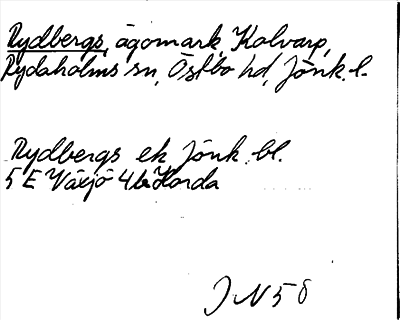 Rydbergs, ägomark, Kalvarp,
Rydaholms sn, Östbo hd, Jönk. l.
Rydbergs ek Jönk. bl.
5 E Växjö 4b Horda